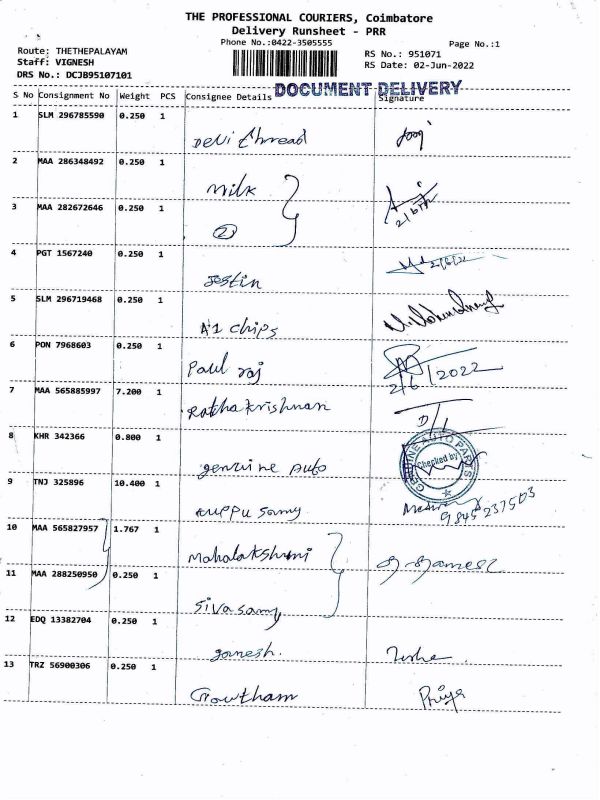 THE PROFESSIONAL COURIERS, Coimbatore
Delivery Runsheet - PRR
Phone No.:0422-3505555
Page No.:1
Route: THETHEPALAYAM
Staff: VIGNESH
DRS No.: DCJB95107101
RS No.: 951071
RS Date: 02-Jun-2022
DOCUMENT DELIVERY
S No Consignment No Weight PCS Consignee Details Signature
1 SLM 296785590 0.250 1
Devi thread
2 MAA 286348492 0.250 1
milk
3 MAA 282672646 0.250 1
2
2/6/22
4 PGT 1567240 0.250 1
Jostin 2/6/22
5 SLM 296719468 0.250 1
A1 chips
6 PON 7968603 0.250 1
Paul raj 2/6/2022
7 MAA 565885997 7.200 1
Rathakrishnan
8 KHR 342366 0.800 1
genuine Auto
GENUINE AUTO PARTS
Checked by
9 TNJ 325896 10.400 1
kuppu samy
10 MAA 565827957 1.767 1
Mahalakshmi
11 MAA 288250950 0.250 1
Siva samy
12 EDQ 13382704 0.250 1
ganesh.
13 TRZ 56900306 0.250 1
Gowtham Priya